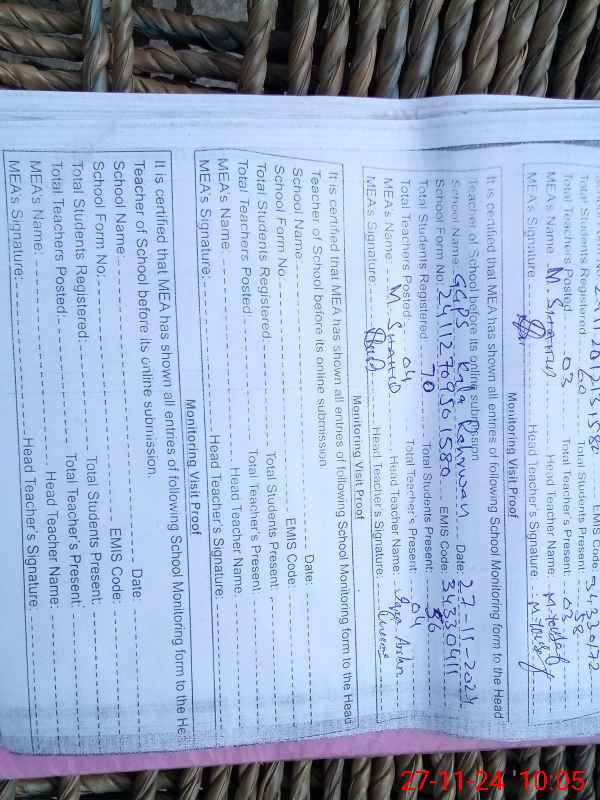 Total Students Registered 60 Total Students Present: 58
Total Teachers Posted 03 Total Teacher's Present: 03
MEA's Name M. SHAHID Head Teacher Name: M. Yousaf
MEA's Signature Head Teacher's Signature: M. Yousaf
Monitoring Visit Proof
It is certified that MEA has shown all entries of following School Monitoring form to the Head
Teacher of School before its online submission
School Name GGPS Date: 27-11-2024
School Form No. EMIS Code: 34330411
Total Students Registered 70 Total Students Present: 56
Total Teachers Posted 04 Total Teacher's Present: 04
MEA's Name M. SHAHID Head Teacher Name:
MEA's Signature Head Teacher's Signature:
Monitoring Visit Proof
It is certified that MEA has shown all entries of following School Monitoring form to the Head
Teacher of School before its online submission
School Name Date:
School Form No. EMIS Code:
Total Students Registered Total Students Present:
Total Teachers Posted Total Teacher's Present:
MEA's Name Head Teacher Name:
MEA's Signature: Head Teacher's Signature:
Monitoring Visit Proof
It is certified that MEA has shown all entries of following School Monitoring form to the He
Teacher of School before its online submission.
School Name Date:
School Form No: EMIS Code:
Total Students Registered: Total Students Present:
Total Teachers Posted: Total Teacher's Present:
MEA's Name: Head Teacher Name:
MEA's Signature: Head Teacher's Signature:
27-11-24 10:05